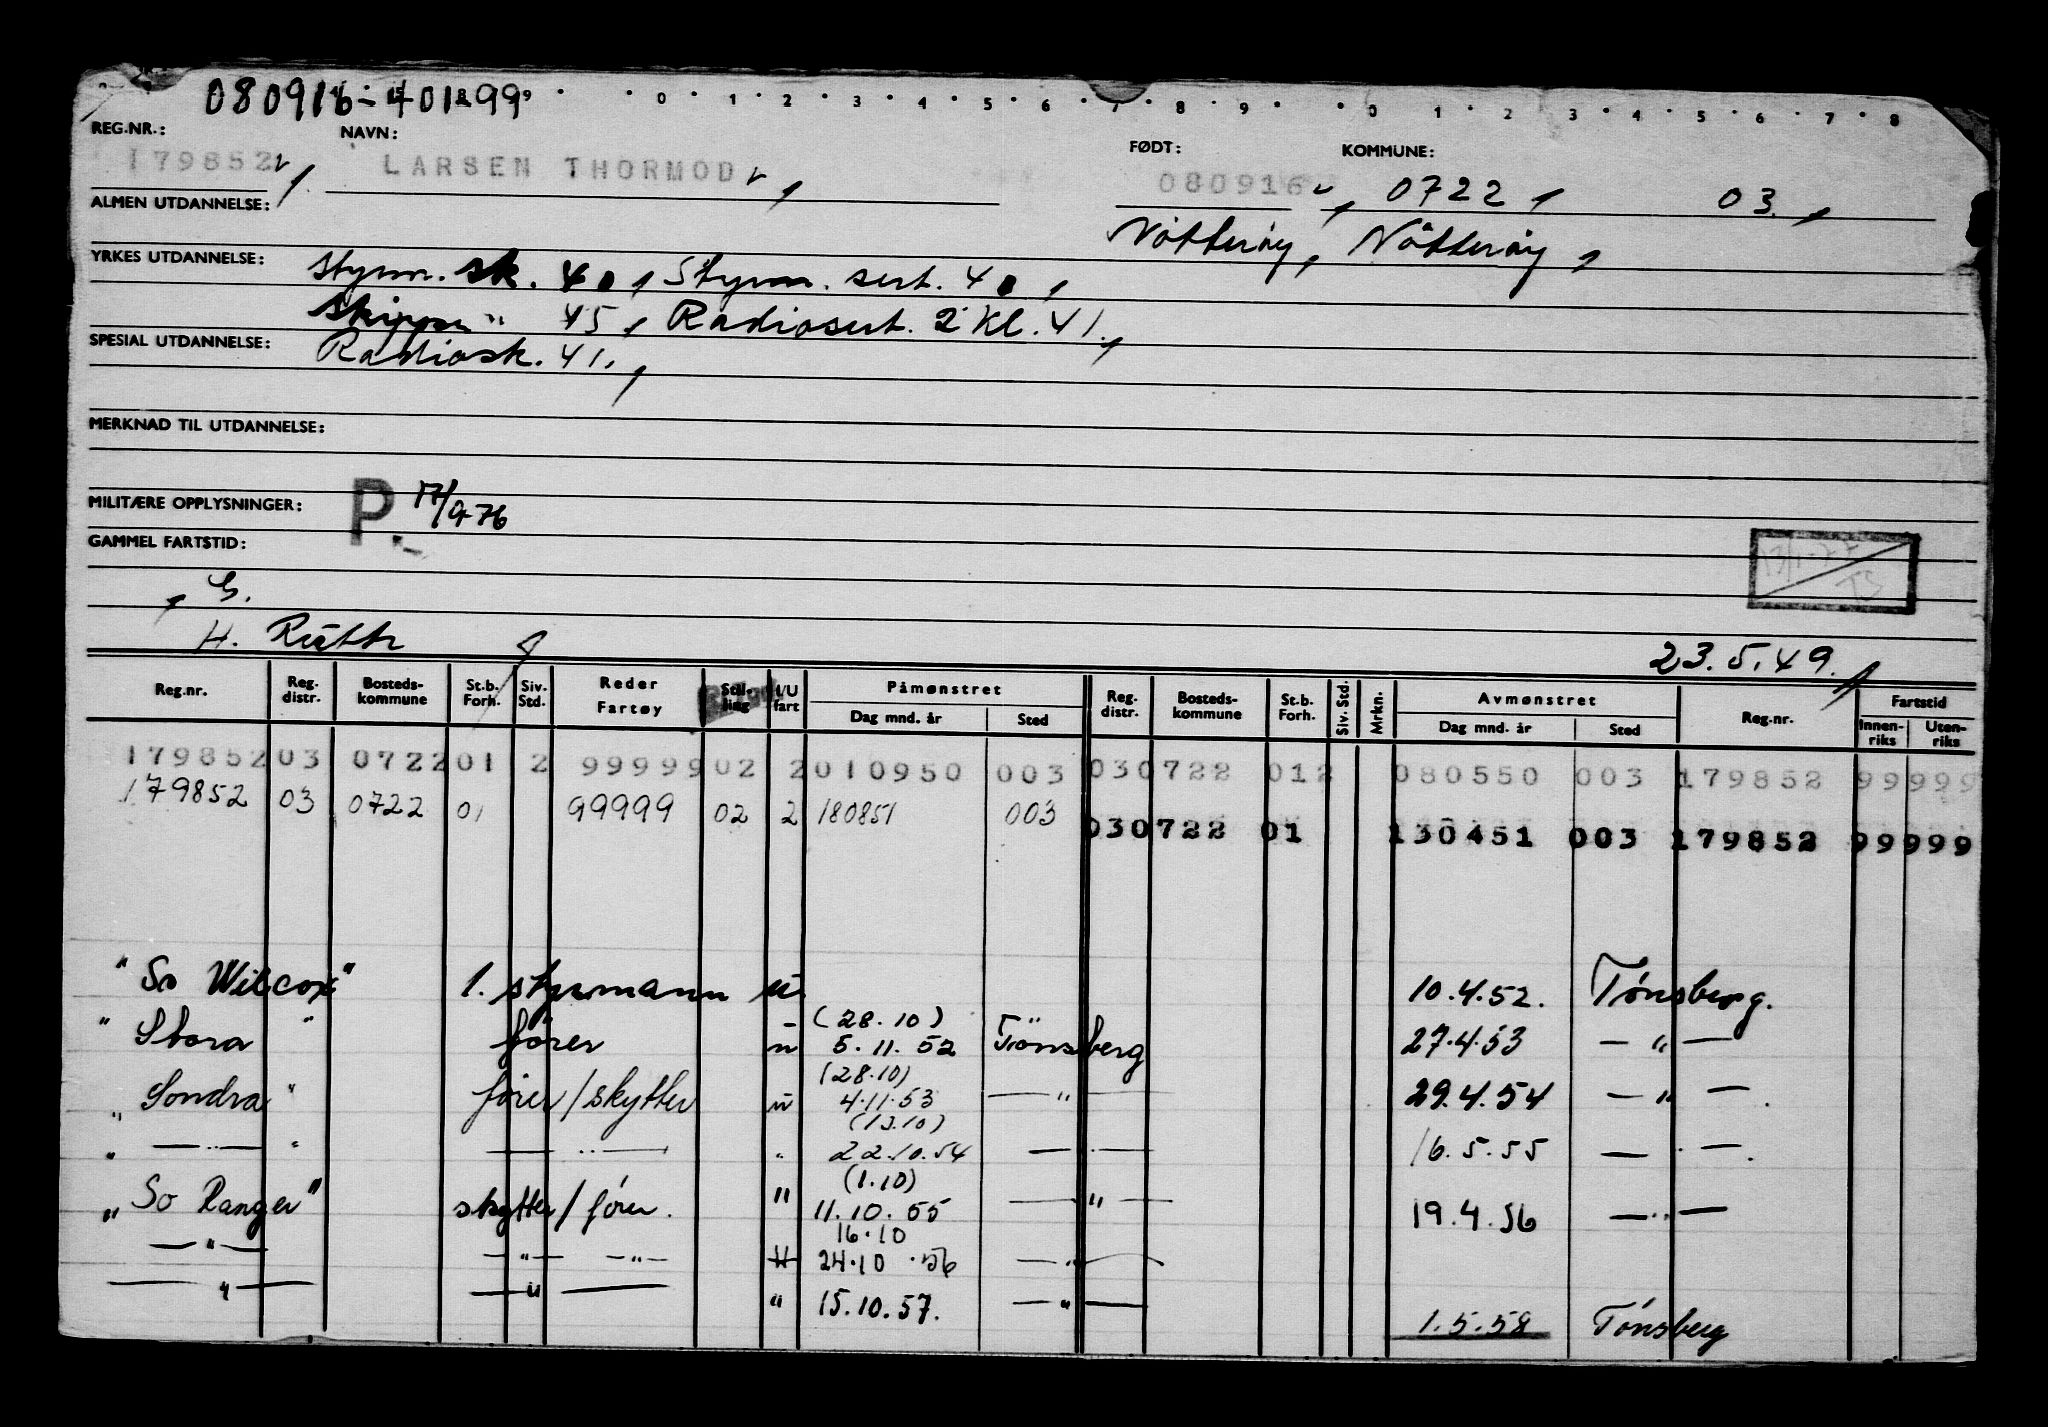 080916-40199
0 1 2 3 4 5 6 7 8 9 0 1 2 3 4 5 6 7 8
REG.NR.: NAVN: FØDT: KOMMUNE:
179852 LARSEN THORMOD 080916, 0722, 03.,
ALMEN UTDANNELSE: Nøtterøy, Nøtterøy,
YRKES UTDANNELSE: Styrm. sk. 40, Styrm. sert. 40,
Skipper " 45, Radiosert. 2 Kl. 41.,
SPESIAL UTDANNELSE: Radiosk. 41.,
MERKNAD TIL UTDANNELSE:
MILITÆRE OPPLYSNINGER: P. 17/9-76
GAMMEL FARTSTID:
, G.
H. Ruth 23.5.49.
Reg.nr. Reg. distr. Bosteds- kommune St.b. Forh. Siv. Std. Reder Fartøy Stil- ling I/U fart Påmønstret Dag mnd. år Sted Reg. distr. Bosteds- kommune St.b. Forh. Siv. Std. Mrkn. Avmønstret Dag mnd. år Sted Reg.nr. Fartstid Innen- riks Uten- riks
179852 03 0722 01 2 99999 02 2 010950 003 03 0722 01 2 080550 003 179852 99 999
179852 03 0722 01 99999 02 2 180851 003 03 0722 01 130451 003 179852 99 999
"So Wilcox" 1. styrmann u. 10.4.52. Tønsberg.
(28.10)
" Stora " fører u 5.11.52 Tønsberg 27.4.53 — " —
(28.10)
" Sondra " fører/skytter u 4.11.53 — " — 29.4.54 — " — .
(13.10)
" — " — " — " — " 22.10.54 — " — 16.5.55 — " — .
(1.10)
"So Ranger" skytter/fører. " 11.10.55 — " — 19.4.56 — " —
16.10
— " — — " — — " — 24.10.56 — " —
— " — — " — " 15.10.57. — " — 1.5.58 Tønsberg